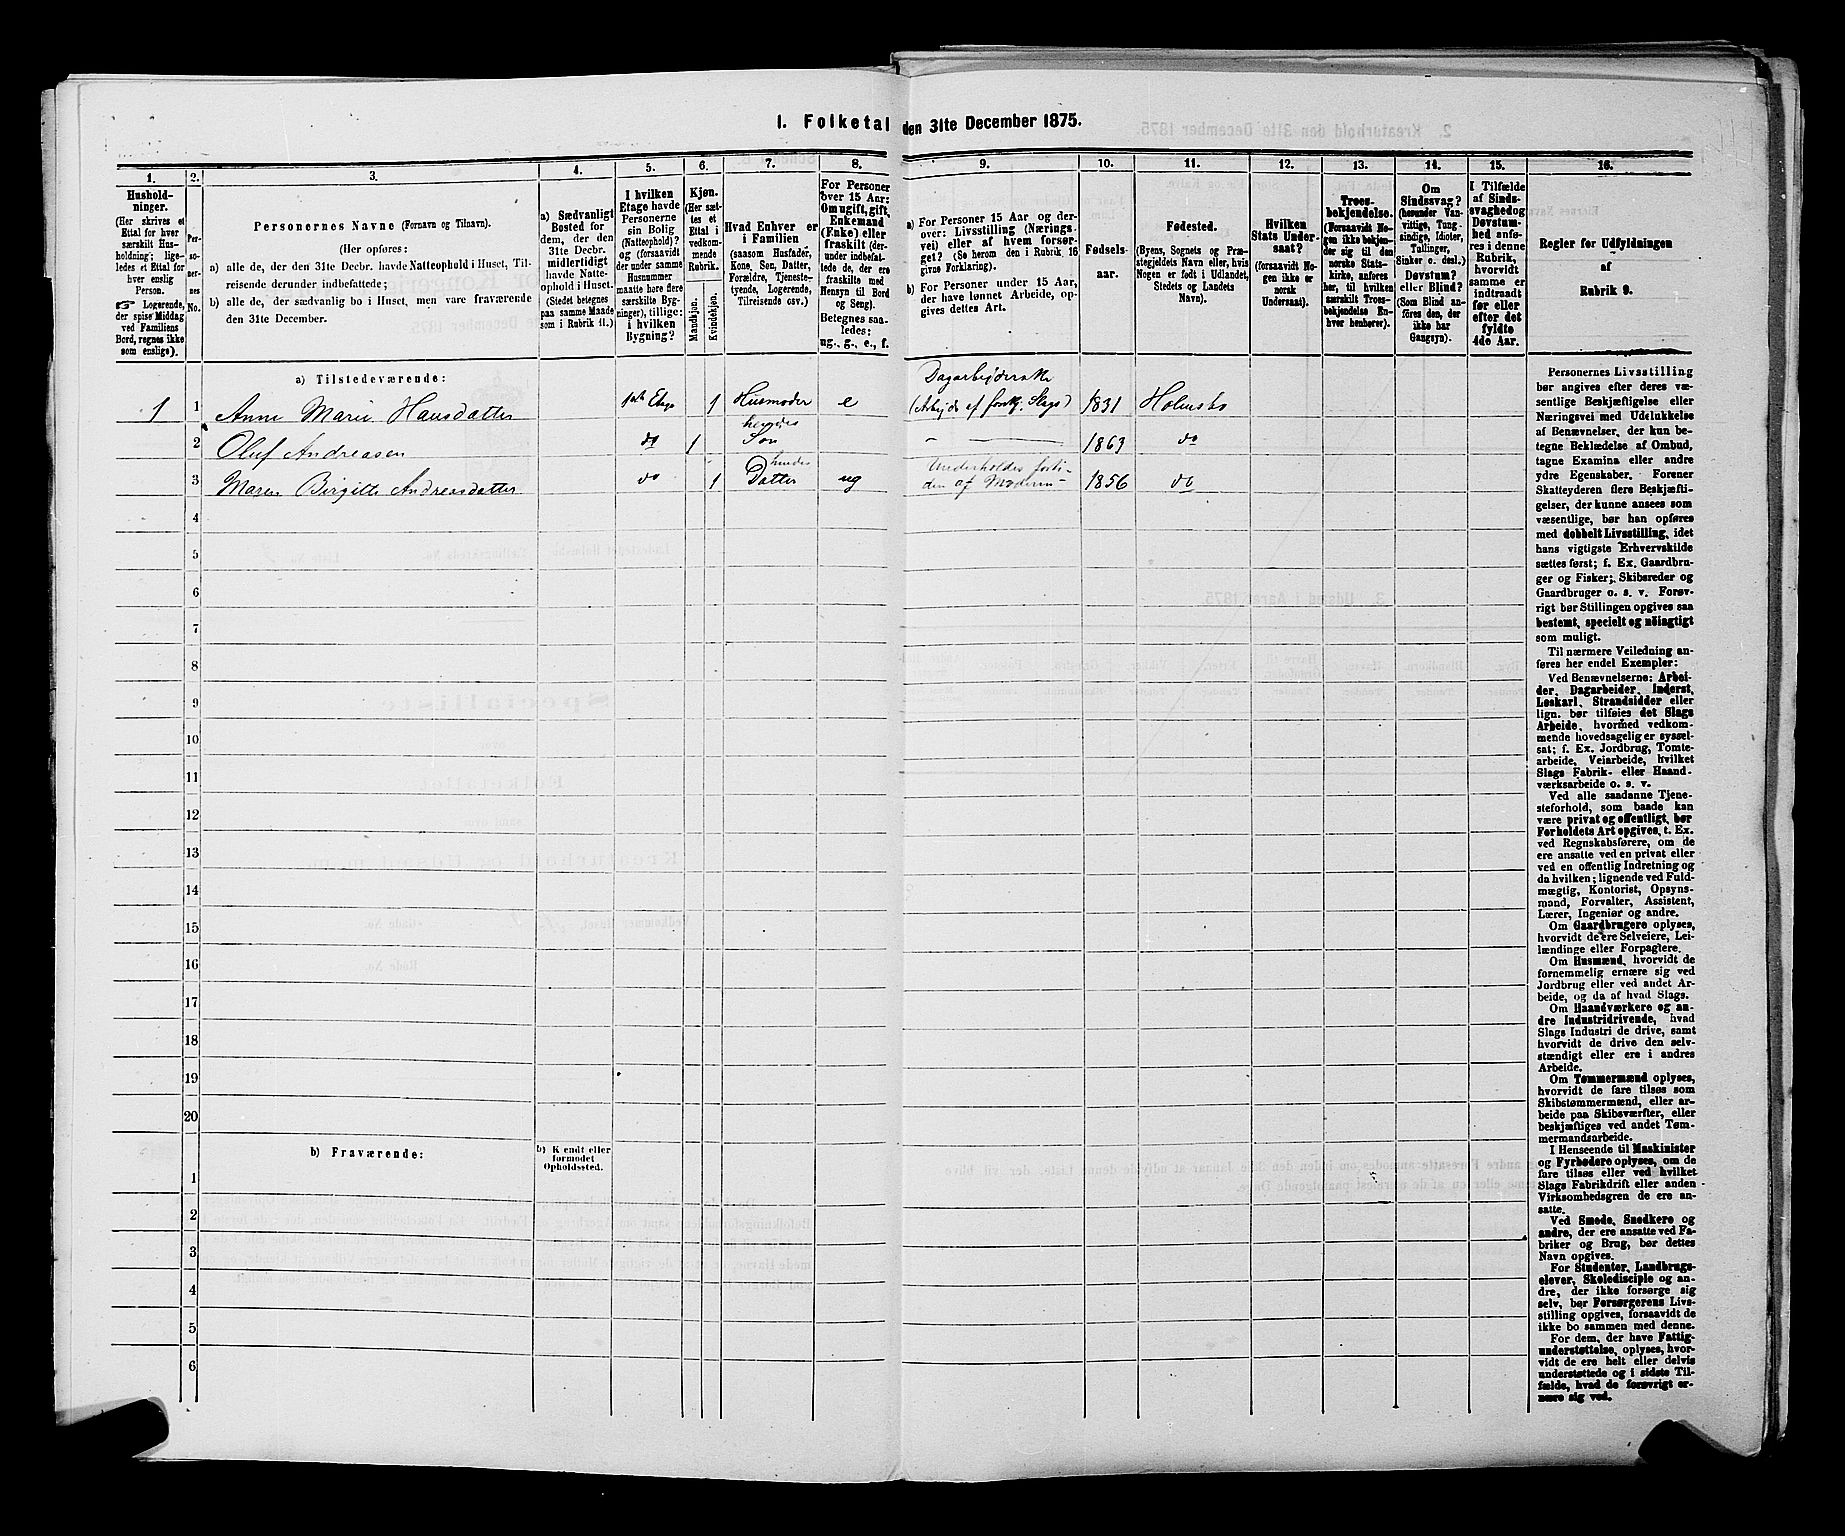 I. Folketal den 31te December 1875.
1. 2. 3. 4. 5. 6. 7. 8. 9. 10. 11. 12. 13. 14. 15. 16.
Hushold-
ninger.
(Her skrives et
Ettal for hver
særskilt Hus-
holdning; lige-
ledes et Ettal for
hver enslig
Person.
☞ Logerende,
der spise Middag
ved Familiens
Bord, regnes ikke
som enslige).
Per-
so-
ner-
nes
No.
Personernes Navne (Fornavn og Tilnavn).
(Her opføres:
a) alle de, der den 31te Decbr. havde Natteophold i Huset, Til-
reisende derunder indbefattede;
b) alle de, der sædvanlig bo i Huset, men vare fraværende
den 31te December.
a) Sædvanligt
Bosted for
dem, der den
31te Decbr.
midlertidigt
havde Natte-
ophold i Huset.
(Stedet betegnes
paa samme Maade
som i Rubrik 11.)
I hvilken
Etage havde
Personerne
sin Bolig
(Natteophold)?
og (forsaavidt
der under samme
Husnummer
maatte høre flere
særskilte Byg-
ninger), tillige:
i hvilken
Bygning?
Kjøn.
(Her sæt-
tes et
Ettal i
vedkom-
mende
Rubrik.
Mandkjøn.
Kvindekjøn.
Hvad Enhver er
i Familien
(saasom Husfader,
Kone, Søn, Datter,
Forældre, Tjeneste-
tyende, Logerende,
Tilreisende osv.)
For Personer
over 15 Aar:
Om ugift, gift,
Enkemand
(Enke) eller
fraskilt (der-
under indbefat-
tede de, der ere
fraskilte med
Hensyn til Bord
og Seng).
Betegnes saa-
ledes:
ug., g., e., f.
a) For Personer 15 Aar og der-
over: Livsstilling (Nærings-
vei) eller af hvem forsør-
get? (Se herom den i Rubrik 16
givne Forklaring).
b) For Personer under 15 Aar,
der have lønnet Arbeide, op-
gives dettes Art.
Fødsels-
aar.
Fødested.
(Byens, Sognets og Præ-
stegjeldets Navn eller, hvis
Nogen er født i Udlandet,
Stedets og Landets
Navn).
Hvilken
Stats Under-
saat?
(forsaavidt No-
gen ikke er
norsk
Undersaat).
Troes-
bekjendelse.
(Forsaavidt No-
gen ikke bekjen-
der sig til den
norske Stats-
kirke, anføres
her, til hvilken
særskilt Troes-
bekjendelse En-
hver henhører).
Om
Sindssvag?
(herunder Van-
vittige, Tung-
sindige, Idioter,
Tullinger,
Sinker o. desl.)
Døvstum?
eller Blind?
(Som Blind an-
føres den, der
ikke har
Gangsyn).
I Tilfælde
af Sinds-
svaghed og
Døvstum-
hed anfø-
res i denne
Rubrik,
hvorvidt
samme er
indtraadt
før eller
efter det
fyldte
4de Aar.
Regler for Udfyldningen
af
Rubrik 9.
a) Tilstedeværende:
1 1 Anne Marie Hansdatter 1ste Etage 1 Husmoder e Dagarbejderske (Arbejde af forskj. Slags) 1831 Holmsbo
2 Oluf Andreasen do 1 hendes Søn - 1863 do
3 Maren Birgitte Andreasdatter do 1 hendes Datter ug Underholdes forti-
den af Moderen 1856 do
4
5
6
7
8
9
10
11
12
13
14
15
16
17
18
19
20
b) Fraværende:
b) Kjendt eller
formodet
Opholdssted.
1
2
3
4
5
6
Personernes Livsstilling
bør angives efter deres væ-
sentlige Beskjæftigelse eller
Næringsvei med Udelukkelse
af Benævnelser, der kun be-
tegne Beklædelse af Ombud,
tagne Examina eller andre
ydre Egenskaber. Forener
Skatteyderen flere Beskjæfti-
gelser, der kunne ansees som
væsentlige, bør han opføres
med dobbelt Livsstilling, idet
hans vigtigste Erhvervskilde
sættes først; f. Ex. Gaardbru-
ger og Fisker; Skibsreder og
Gaardbruger o. s. v. Forøv-
rigt bør Stillingen opgives saa
bestemt, specielt og nöiagtigt
som muligt.
Til nærmere Veiledning an-
føres her endel Exempler:
Ved Benævnelserne: Arbei-
der, Dagarbeider, Inderst,
Løskarl, Strandsidder eller
lign. bør tilføies det Slags
Arbeide, hvormed vedkom-
mende hovedsagelig er syssel-
sat; f. Ex. Jordbrug, Tomte-
arbeide, Veiarbeide, hvilket
Slags Fabrik- eller Haand-
værksarbeide o. s. v.
Ved alle saadanne Tjene-
steforhold, som baade kan
være privat og offentligt, bør
Forholdets Art opgives, t. Ex.
ved Regnskabsførere, om de
ere ansatte ved en privat eller
ved en offentlig Indretning og
da hvilken; lignende ved Fuld-
mægtig, Kontorist, Opsyns-
mand, Forvalter, Assistent,
Lærer, Ingeniør og andre.
Om Gaardbrugere oplyses,
hvorvidt de ere Selveiere, Lei-
lændinge eller Forpagtere.
Om Husmænd, hvorvidt de
fornemmelig ernære sig ved
Jordbrug eller ved andet Ar-
beide, og da af hvad Slags.
Om Haandværkere og an-
dre Industridrivende, hvad
Slags Industri de drive, samt
hvorvidt de drive den selv-
stændigt eller ere i andres
Arbeide.
Om Tømmermænd oplyses,
hvorvidt de fare tilsøs som
Skibstømmermænd, eller ar-
beide paa Skibsværfter, eller
beskjæftiges ved andet Tøm-
mermandsarbeide.
I Henseende til Maskinister
og Fyrbødere oplyses, om de
fare tilsøs eller ved hvilket
Slags Fabrikdrift eller anden
Virksomhedsgren de ere an-
satte.
Ved Smede, Snedkere og
andre, der ere ansatte ved Fa-
briker og Brug, bør dettes
Navn opgives.
For Studenter, Landbrugs-
elever, Skoledisciple og an-
dre, der ikke forsørge sig
selv, bør Forsørgerens Livs-
stilling opgives, forsaavidt de
ikke bo sammen med denne.
For dem, der have Fattig-
understøttelse, oplyses, hvor-
vidt de ere helt eller delvis
understøttede og i sidste Til-
fælde, hvad de forøvrigt er-
nære sig ved.